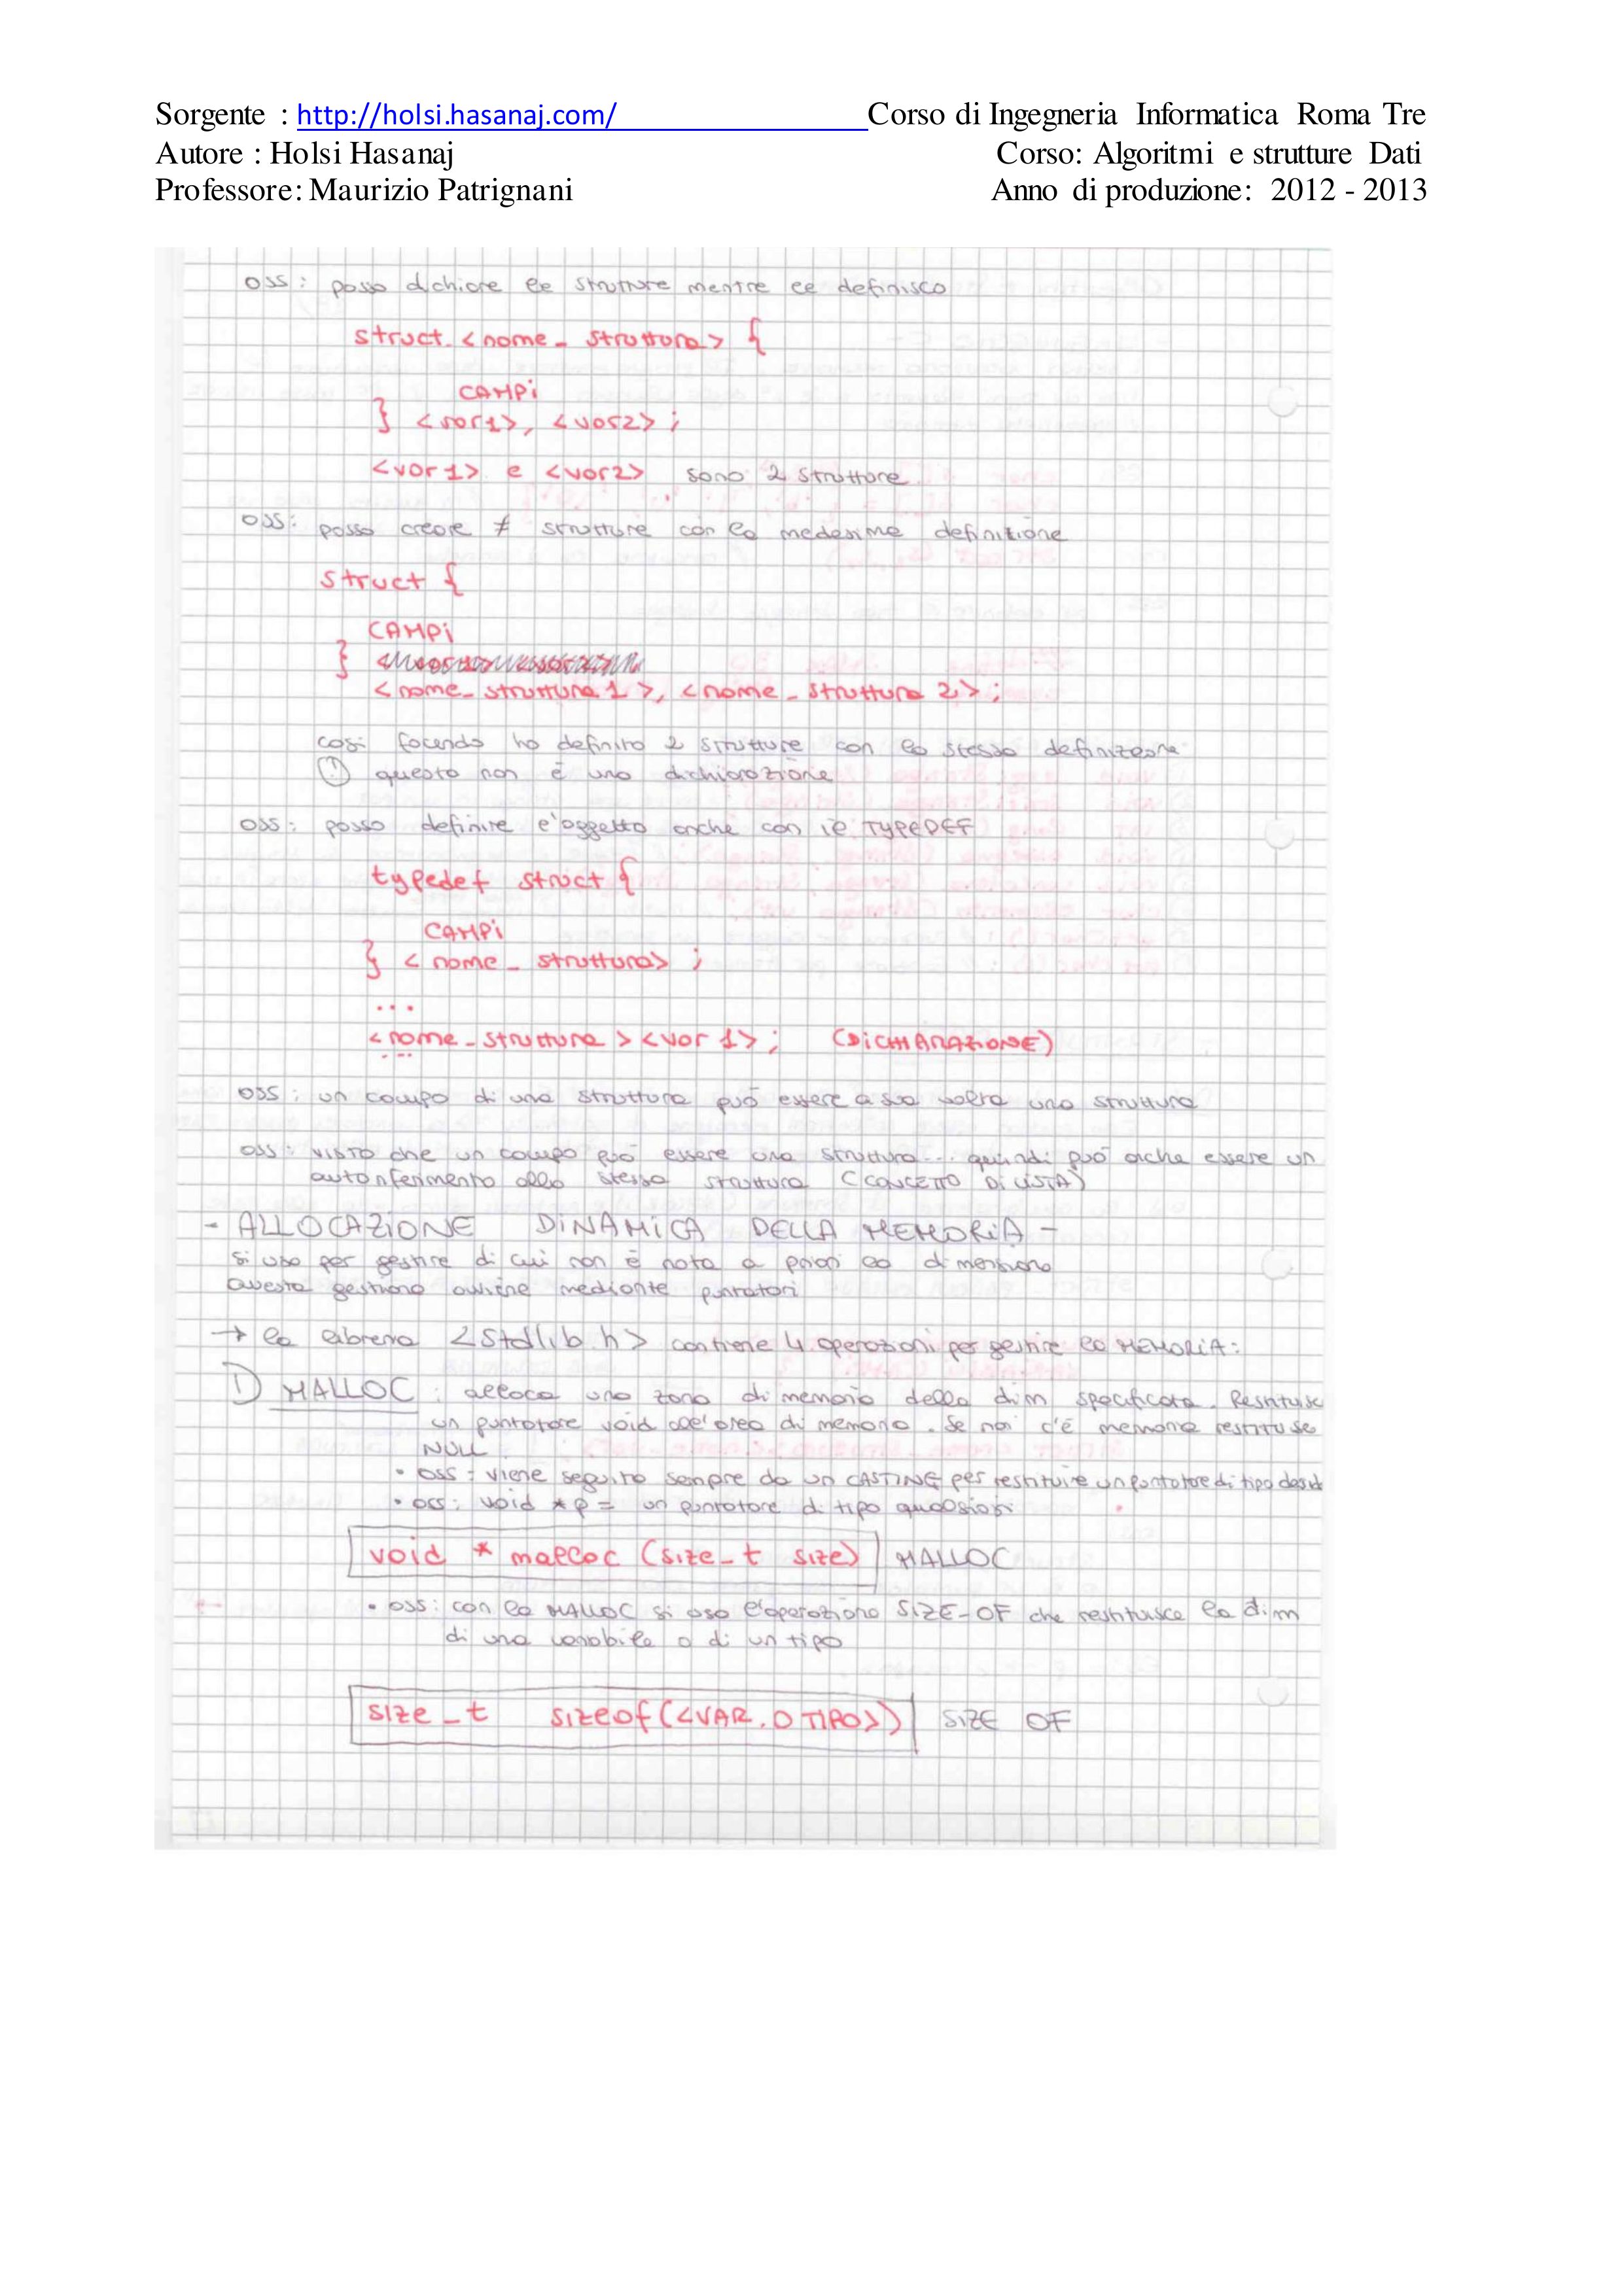 Sorgente : http://holsi.hasanaj.com/ Corso di Ingegneria Informatica Roma Tre
Autore : Holsi Hasanaj Corso: Algoritmi e strutture Dati
Professore: Maurizio Patrignani Anno di produzione: 2012 - 2013
OSS: posso dichiare le strutture mentre le definisco
struct <nome_struttura> {
CAMPi
} <var1>, <var2>;
<var1> e <var2> sono 2 strutture
OSS: posso creare ≠ strutture con la medesima definizione
struct {
CAMPi
}
<nome_struttura1>, <nome_struttura2>;
cosi facendo ho definito 2 strutture con la stessa definizione
(!) questa non è una dichiarazione
OSS: posso definire l'oggetto anche con il TYPEDEF
typedef struct {
CAMPi
} <nome_struttura>;
...
<nome_struttura> <var1>; (DICHIARAZIONE)
...
OSS: un campo di una struttura può essere a sua volta una struttura
OSS: VISTO che un campo può essere una struttura... quindi può anche essere un
autoriferimento alla stessa struttura (CONCETTO DI LISTA)
- ALLOCAZIONE DINAMICA DELLA MEMORIA -
si usa per gestire di cui non è nota a priori la dimensione
Questa gestione avviene mediante puntatori
→ la libreria <stdlib.h> contiene 4 operazioni per gestire la MEMORIA:
1) MALLOC: alloca una zona di memoria della dim specificata. Restituisc
un puntatore void all'area di memoria. Se non c'è memoria restituise
NULL
• OSS: viene seguito sempre da un CASTING per restituire un puntatore di tipo desid
• OSS: void *p = un puntatore di tipo qualsiasi
void * malloc (size_t size) MALLOC
• OSS: con la MALLOC si usa l'operazione SIZE-OF che restituisce la dim
di una variabile o di un tipo
size_t sizeof(<VAR. O TIPO>) SIZE OF